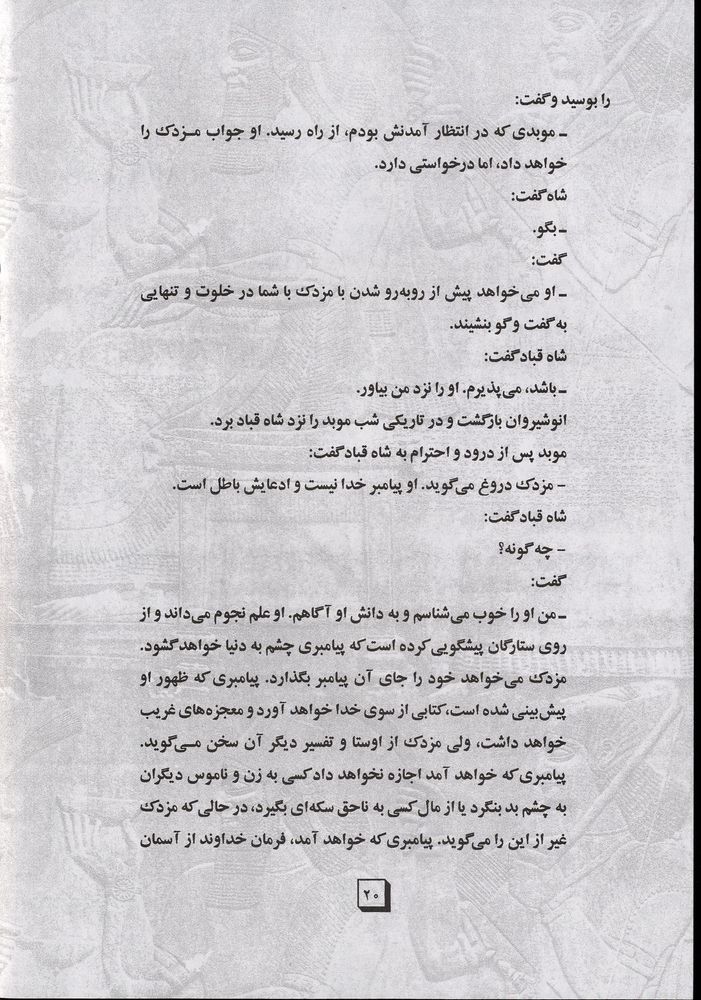 را بوسید و گفت:
ـ موبدی که در انتظار آمدنش بودم، از راه رسید. او جواب مـزدک را
خواهد داد، اما درخواستی دارد.
شاه گفت:
ـ بگو.
گفت:
ـ او می‌خواهد پیش از روبه‌رو شدن با مزدک با شما در خلوت و تنهایی
به گفت و گو بنشیند.
شاه قباد گفت:
ـ باشد، می‌پذیرم. او را نزد من بیاور.
انوشیروان بازگشت و در تاریکی شب موبد را نزد شاه قباد برد.
موبد پس از درود و احترام به شاه قباد گفت:
- مزدک دروغ می‌گوید. او پیامبر خدا نیست و ادعایش باطل است.
شاه قباد گفت:
- چه گونه؟
گفت:
ـ من او را خوب می‌شناسم و به دانش او آگاهم. او علم نجوم می‌داند و از
روی ستارگان پیشگویی کرده است که پیامبری چشم به دنیا خواهد گشود.
مزدک می‌خواهد خود را جای آن پیامبر بگذارد. پیامبری که ظهور او
پیش‌بینی شده است، کتابی از سوی خدا خواهد آورد و معجزه‌های غریب
خواهد داشت، ولی مزدک از اوستا و تفسیر دیگر آن سخن مـی‌گوید.
پیامبری که خواهد آمد اجازه نخواهد داد کسی به زن و ناموس دیگران
به چشم بد بنگرد یا از مال کسی به ناحق سکه‌ای بگیرد، در حالی که مزدک
غیر از این را می‌گوید. پیامبری که خواهد آمد، فرمان خداوند از آسمان
۲۰